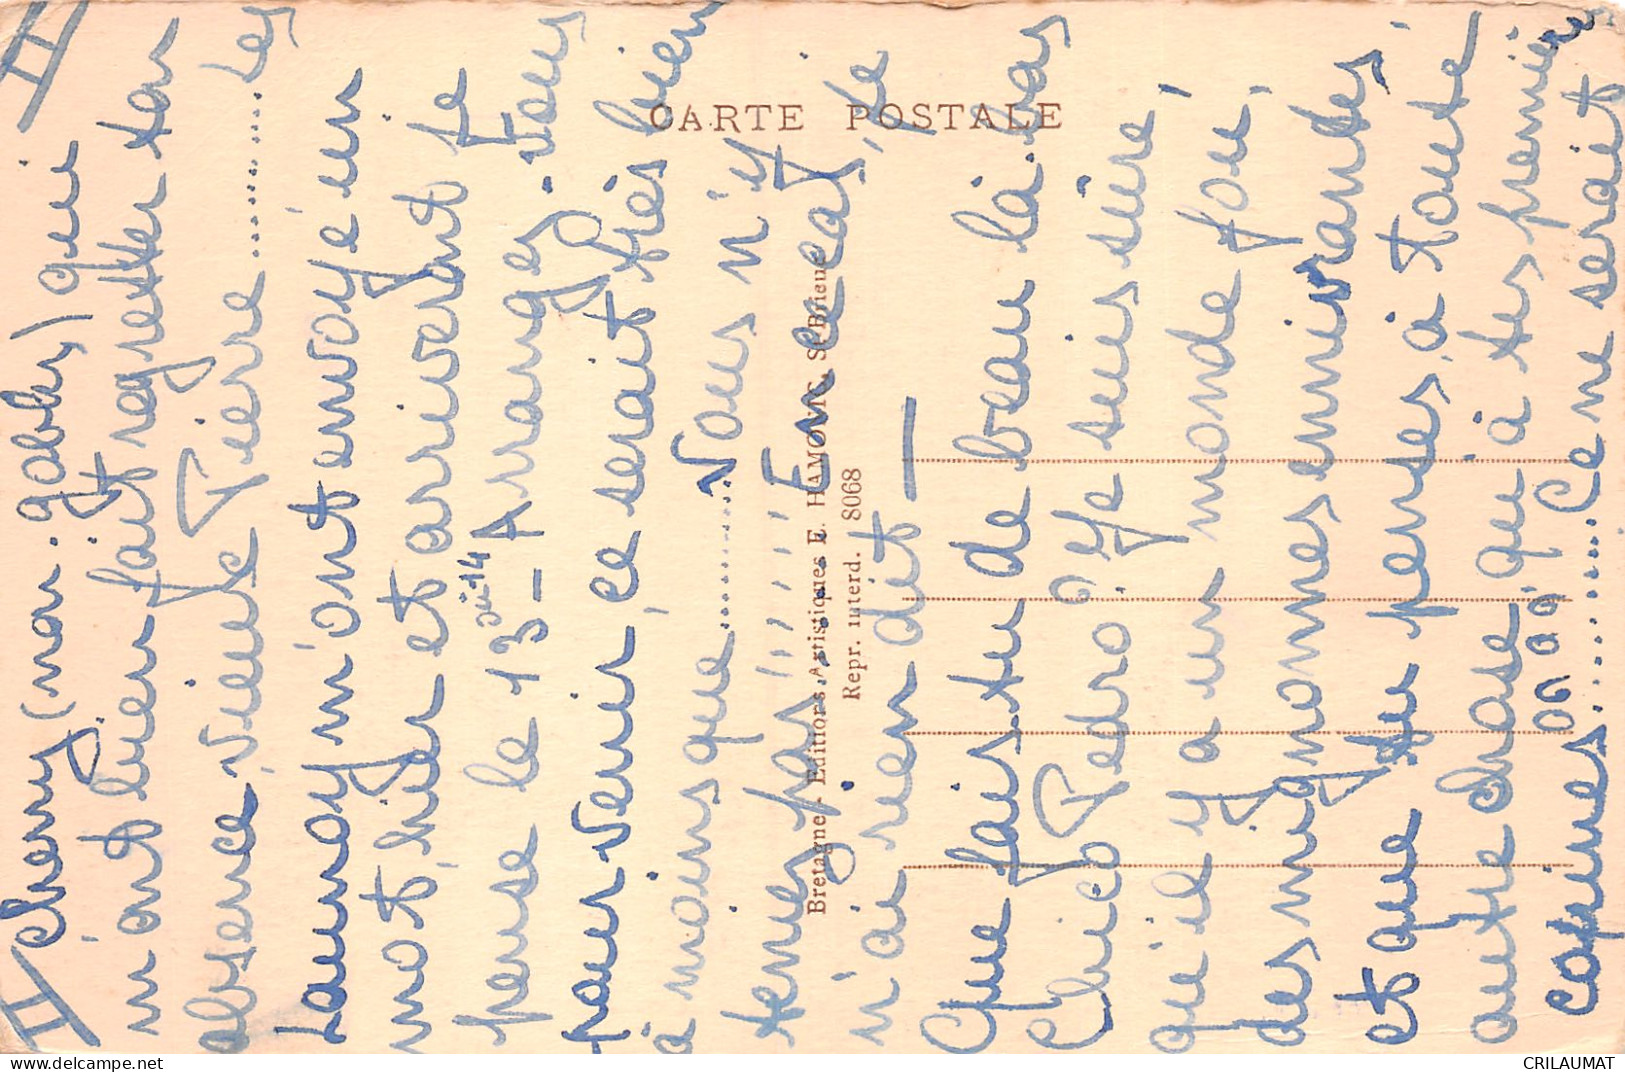 II
II
chery (non : gabby) qui
m'ont bien fait regretter ton
absence, vieille Pierre.......... Les
Launoy m'ont envoyé un
mot, hier et arriveront je
pense le 13 ou 14 — Arrangez. Vous
pour venir, ce serait très bien
à moins que........... Vous n'y
tenez pas !!!!!! En ce cas, je
n'ai rien dit —
Que fais tu de beau là-bas
Chico Pedro ? Je suis sûre,
qu'il y a un monde fou,
des mignonnes enivrantes,
et que tu penses, à toute
autre chose, qu'à tes premières
copines.......... Ce ne serait
CARTE POSTALE
Bretagne - Editions Artistiques E. HAMONIC, St-Brieuc
Repr. interd. 8068
CRILAUMAT